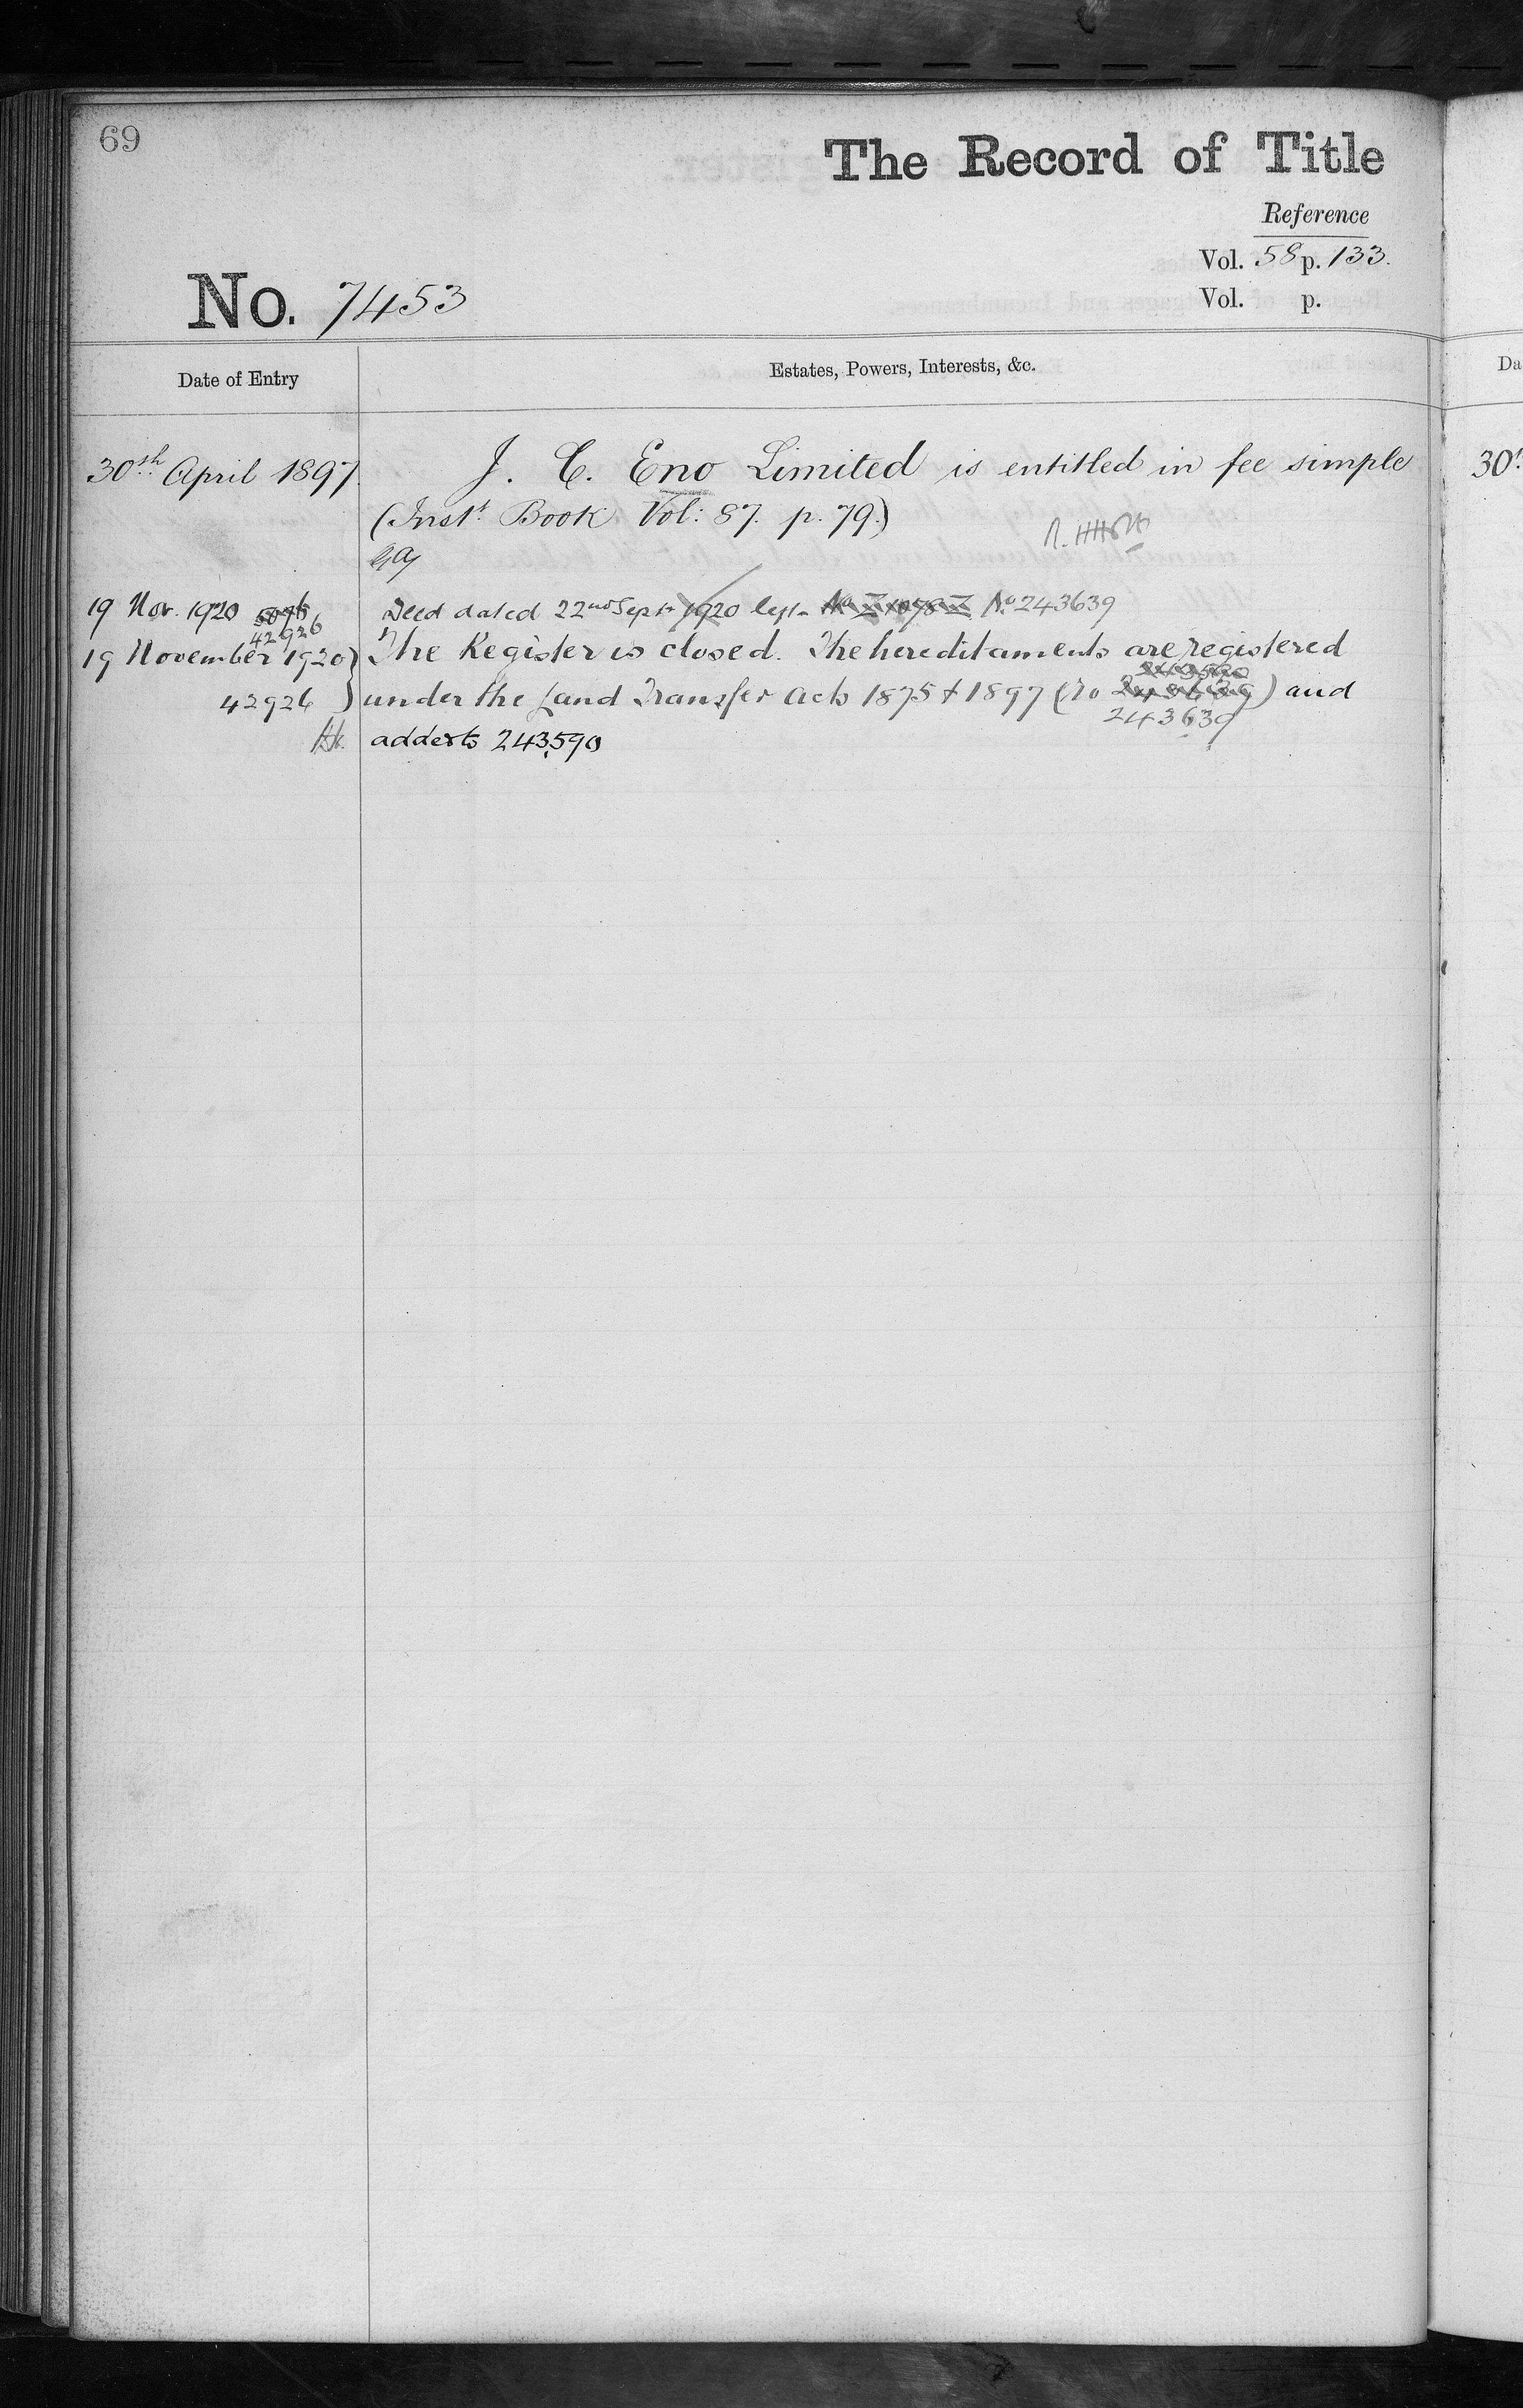 69
The Record of Title
Reference
Vol. 58 p. 133.
Vol. p.
No. 7453
Date of Entry
Estates, Powers, Interests, &c.
Da
30th April 1897.
J. C. Eno Limited is entitled in fee simple
30
(Inst. Book Vol: 87. p. 79.)
19 Nov. 1920
42926
Deed dated 22nd Sept 1920 No 243639
19 November 1920
42926
The Register is closed. The hereditaments are registered
243590
under the Land Transfer Acts 1875 & 1897 (No 243639) and
243639
added to 243590